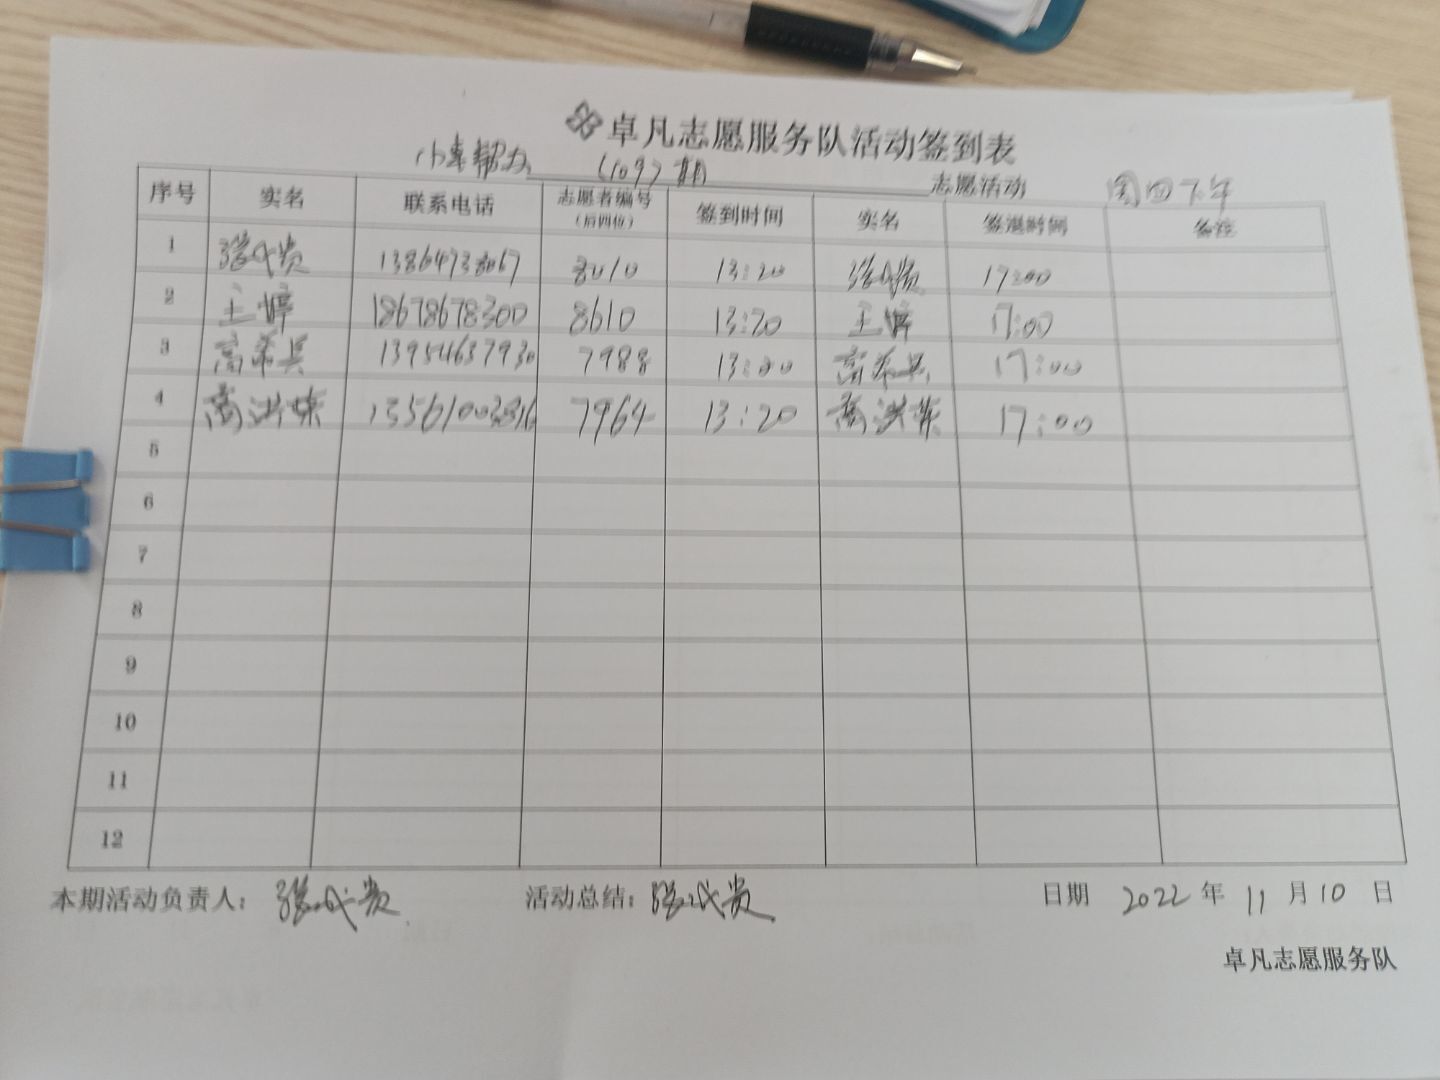 卓凡志愿服务队活动签到表
小卓帮办 (109)期 志愿活动 周四下午
序号 实名 联系电话 志愿者编号(后四位) 签到时间 实名 签退时间 备注
1 张成贵 13864738067 8010 13:20 张成贵 17:00
2 王婷 18678678300 8610 13:20 王婷 17:00
3 高 13954637930 7988 13:20 高 17:00
4 高洪 13561003816 7964 13:20 高洪 17:00
5
6
7
8
9
10
11
12
本期活动负责人: 张成贵 活动总结: 张成贵 日期 2022 年 11 月 10 日
卓凡志愿服务队